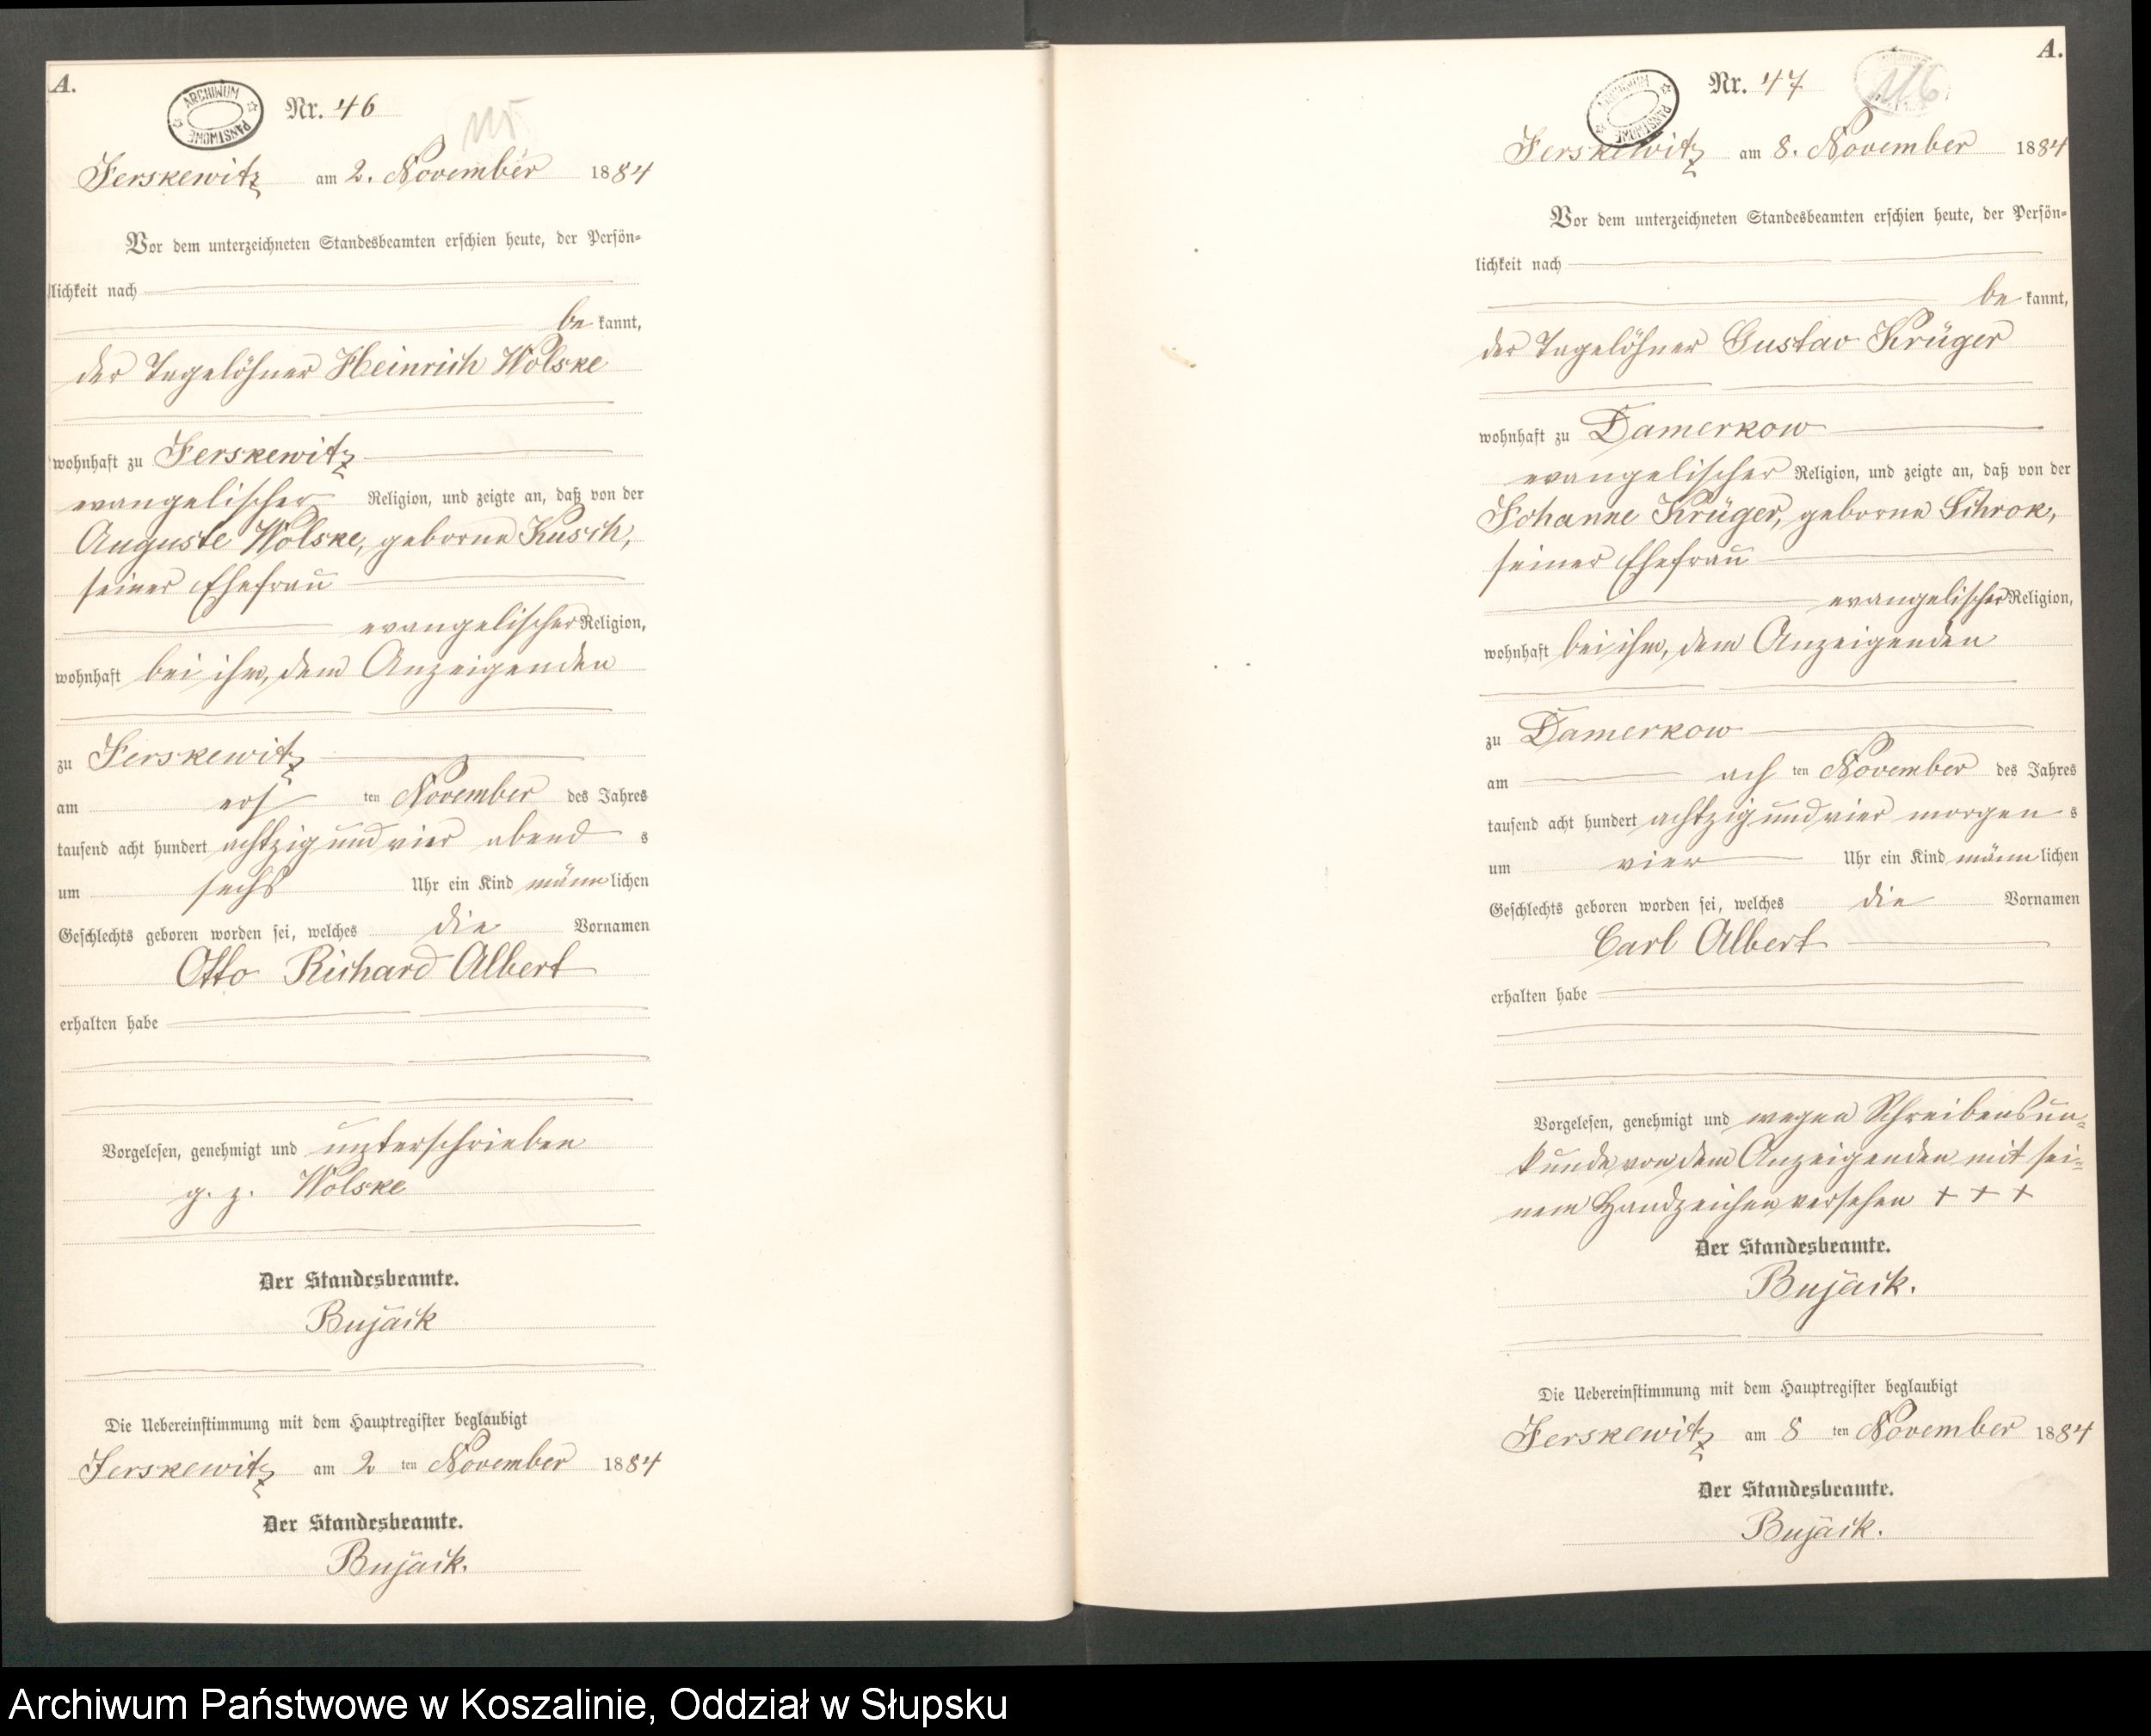 A.
ARCHIWUM PAŃSTWOWE
Nr. 46
115
Jerskewitz am 2. November 1884
Vor dem unterzeichneten Standesbeamten erschien heute, der Persön-
lichkeit nach
be kannt,
der Tagelöhner Heinrich Wolske
wohnhaft zu Jerskewitz
evangelischer Religion, und zeigte an, daß von der
Auguste Wolske, geborne Kusch,
seiner Ehefrau
evangelischer Religion,
wohnhaft bei ihm, dem Anzeigenden
zu Jerskewitz
am ers ten November des Jahres
tausend acht hundert achtzig und vier abend s
um sechs Uhr ein Kind männlichen
Geschlechts geboren worden sei, welches die Vornamen
Otto Richard Albert
erhalten habe
Vorgelesen, genehmigt und unterschrieben
g. z. Wolske
Der Standesbeamte.
Bujack
Die Uebereinstimmung mit dem Hauptregister beglaubigt
Jerskewitz am 2 ten November 1884
Der Standesbeamte.
Bujack.
A.
ARCHIWUM PAŃSTWOWE
Nr. 47
116
Jerskewitz am 8. November 1884
Vor dem unterzeichneten Standesbeamten erschien heute, der Persön-
lichkeit nach
be kannt,
der Tagelöhner Gustav Krüger
wohnhaft zu Damerkow
evangelischer Religion, und zeigte an, daß von der
Johanne Krüger, geborne Schrok,
seiner Ehefrau
evangelischer Religion,
wohnhaft bei ihm, dem Anzeigenden
zu Damerkow
am ach ten November des Jahres
tausend acht hundert achtzig und vier morgen s
um vier Uhr ein Kind männlichen
Geschlechts geboren worden sei, welches die Vornamen
Carl Albert
erhalten habe
Vorgelesen, genehmigt und wegen Schreibensun-
kunde von dem Anzeigenden mit sei-
nem Handzeichen versehen + + +
Der Standesbeamte.
Bujack.
Die Uebereinstimmung mit dem Hauptregister beglaubigt
Jerskewitz am 8 ten November 1884
Der Standesbeamte.
Bujack.
Archiwum Państwowe w Koszalinie, Oddział w Słupsku